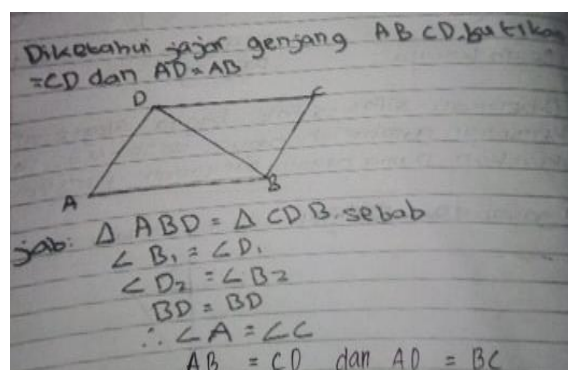 Diketahui jajar genjang ABCD. butikan
=CD dan AD=AB
D
C
A
B
jab: Δ ABD = Δ CDB. sebab
∠ B₁ = ∠D₁
∠ D₂ = ∠B₂
BD = BD
∴ ∠A = ∠C
AB = CD dan AD = BC